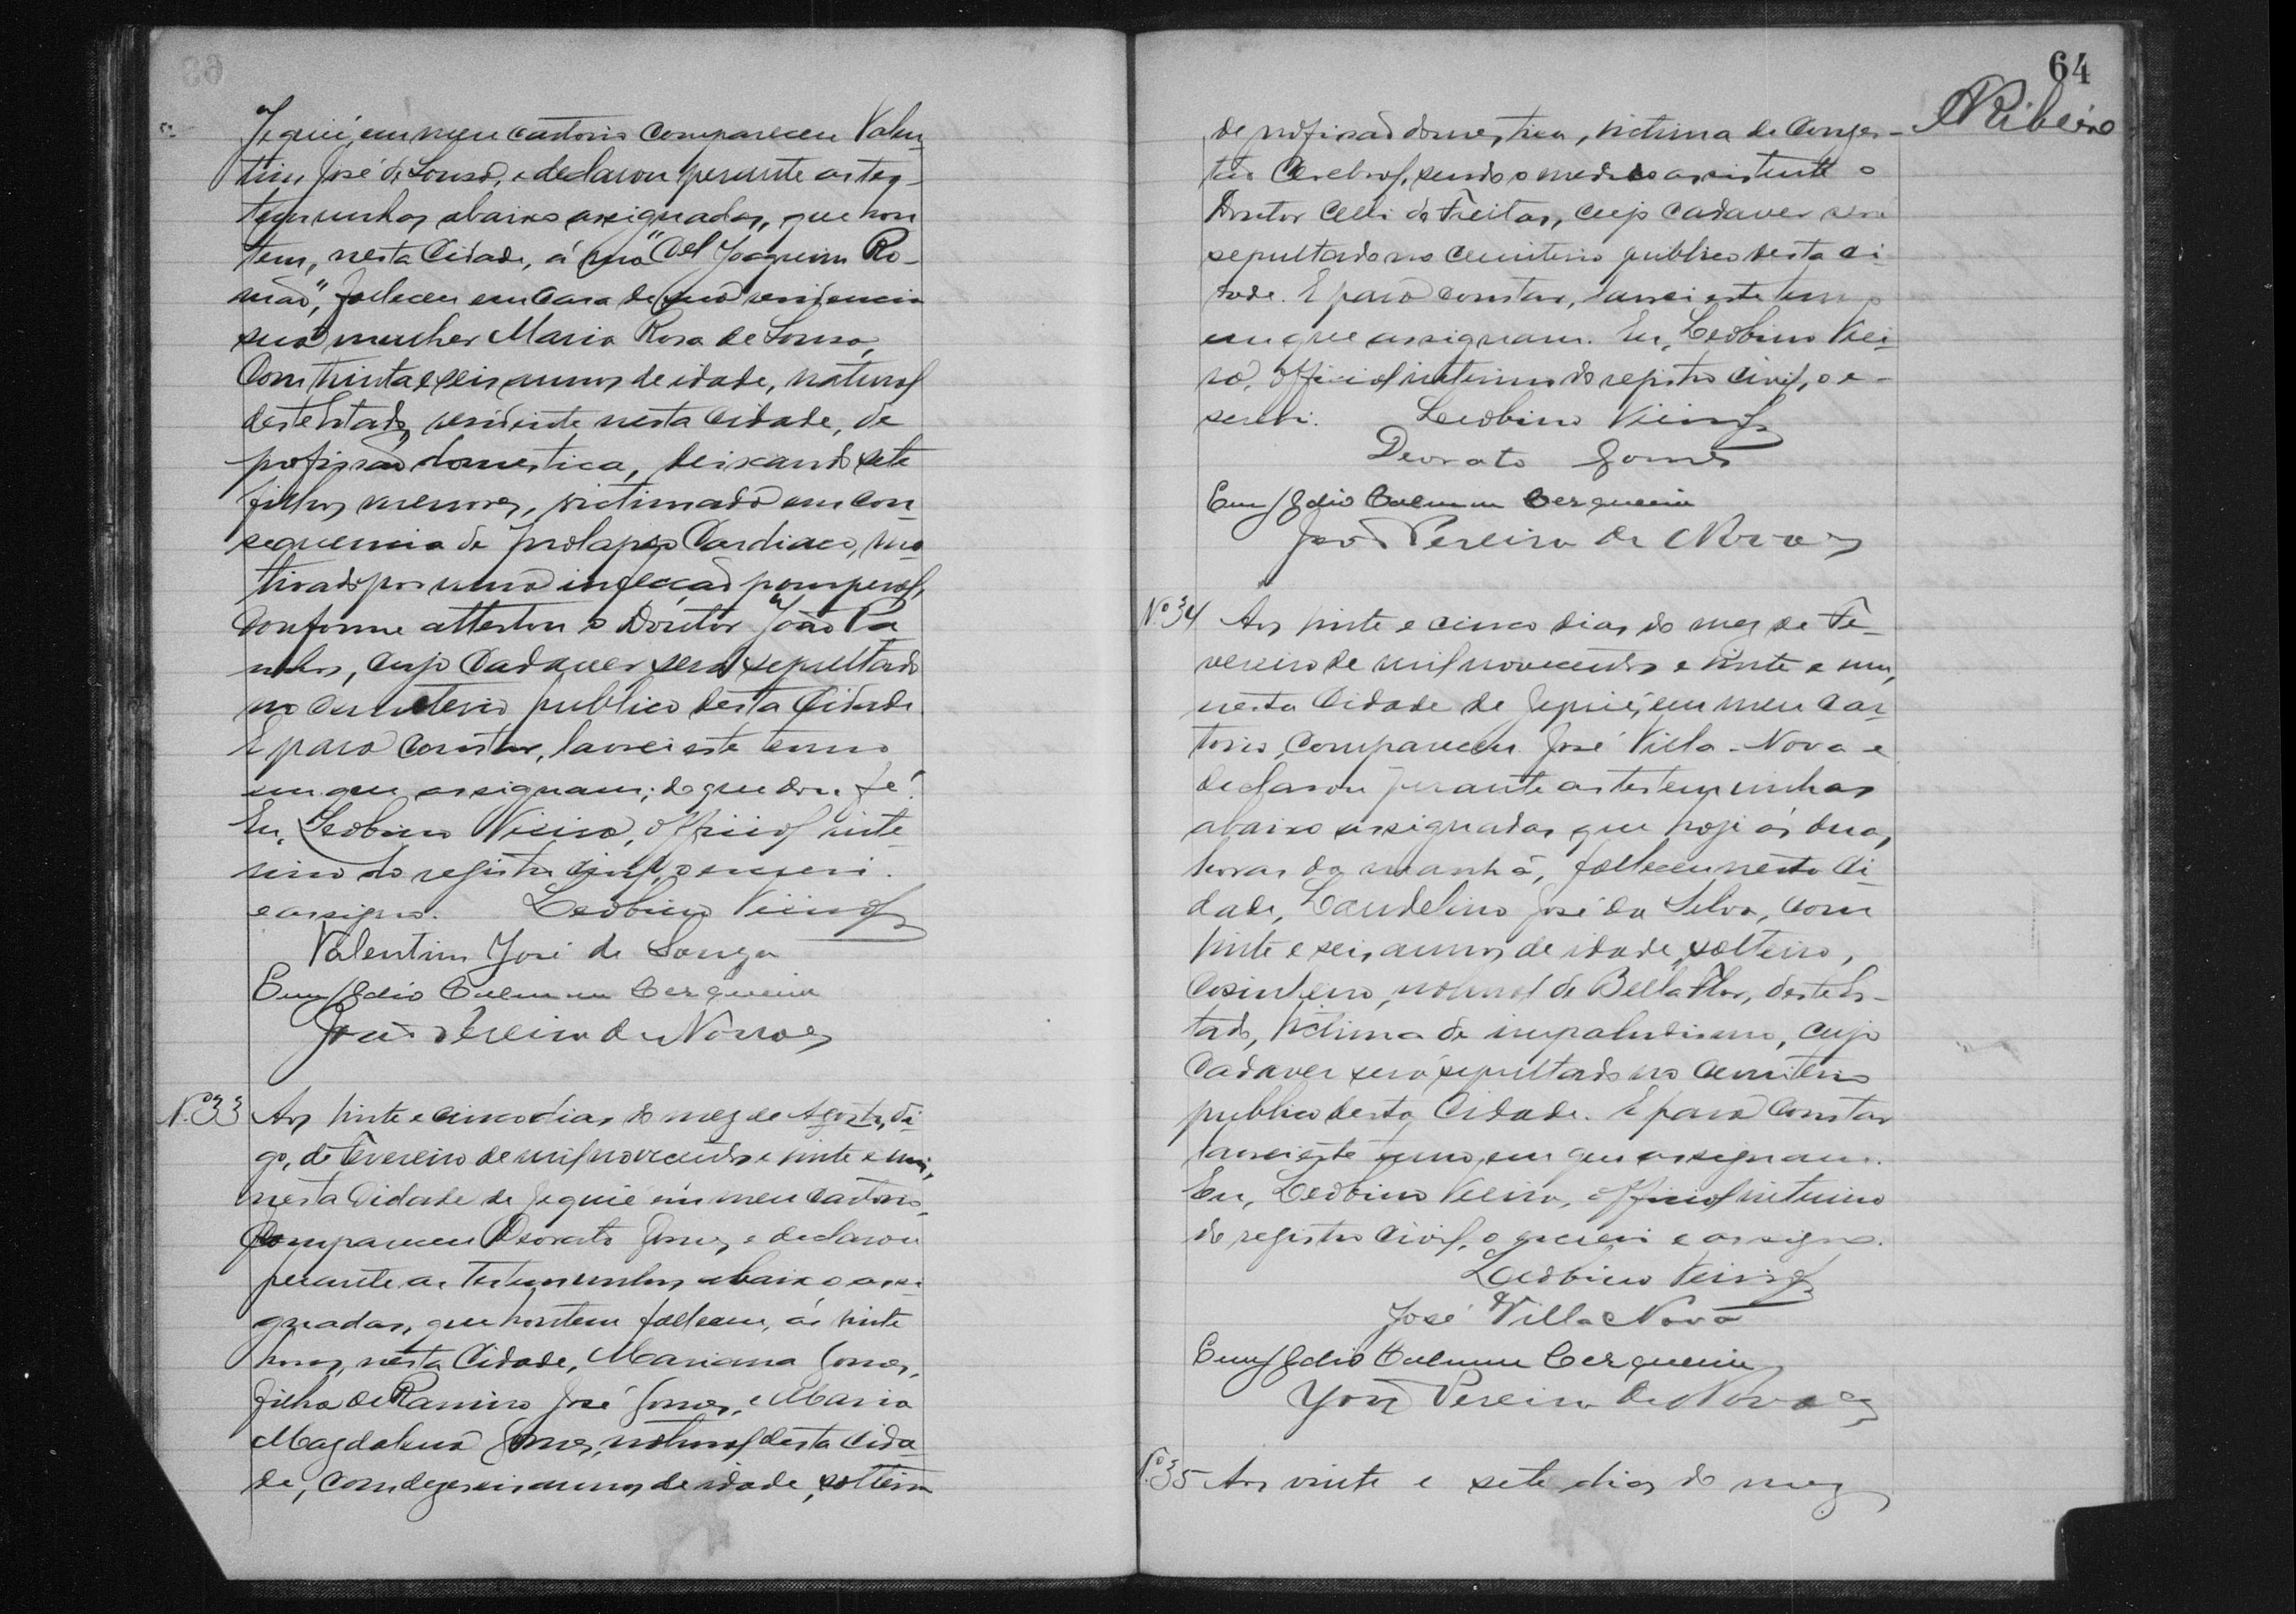 Jequié, em meu cartorio compareceu Valen-
tim José de Sousa, e declarou perante as tes-
temunhas abaixo assignadas, que hon
tem, nesta Cidade, á rua "Cel Joaquim Ro-
mão", falleceu em casa de sua residencia
sua mulher Maria Rosa de Sousa,
Com trinta e seis annos de idade, natural
deste Estado, residente nesta Cidade, de
profissão domestica, deixando sete
filhos menores, victimada em con-
sequencia de prolapso Cardiaco, mo
tivado por uma infecção
conforme attestou o Doutor João Pa
cujo Cadaver será sepultado
no cemiterio publico desta Cidade.
E para constar, lavrei este termo
em que assignam; do que dou fé.
Eu, Leobino Vieira, Official inte-
rino do registro civil, o escrevi
e assigno. Leobino Vieira
Valentim José de Souza
Emygdio Cerqueira
João Pereira de Novaes
N.º 33 Aos vinte e cinco dias do mez de Agosto, di-
go, de Fevereiro de mil novecentos e vinte e um,
nesta Cidade de Jequié em meu cartorio
Compareceu Deorato Gomes, e declarou
perante as testemunhas abaixo assi-
gnadas, que hontem falleceu, ás vinte
horas, nesta Cidade, Mariana Gomes,
filha de Ramiro José Gomes, e Maria
Magdalena Gomes, natural desta cida-
de, com dezeseis annos de idade, solteira
64
Ribeiro
de profissão domestica, victima de Conges-
tão Cerebral, sendo o medico assistente o
Doutor Celli de Freitas, cujo cadaver será
sepultado no cemiterio publico desta ci-
dade. E para constar, lavrei este termo
em que assignam. Eu, Leobino Viei-
ra, Official interino do registro civil, o e-
screvi. Leobino Vieira
Deorato Gomes
Emygdio Cerqueira
João Pereira de Novaes
N.º 34 Aos vinte e cinco dias do mez de Fe-
vereiro de mil novecentos e vinte e um,
nesta Cidade de Jequié, em meu car-
torio, compareceu José Villa-Nova e
declarou perante as testemunhas
abaixo assignadas que hoje ás duas
horas da manhã, falleceu nesta Ci-
dade, Laudelino José da Silva, com
vinte e seis annos de idade, solteiro,
Cosinheiro, natural de Bella Flor, deste Es-
tado, victima de impaludismo, cujo
Cadaver será sepultado no Cemiterio
publico desta Cidade. E para constar
lavrei este termo, em que assignam.
Eu, Leobino Vieira, official interino
do registro civil, o escrevi e assigno.
Leobino Vieira
José Villa Nova
Emygdio Cerqueira
João Pereira de Novaes
N.º 35 Aos vinte e sete dias do mez